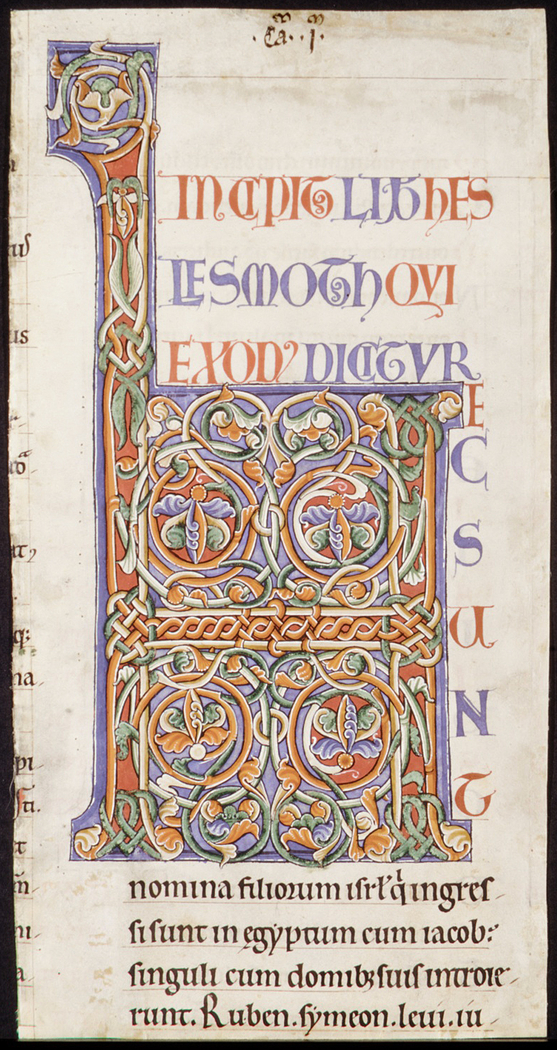 .Ca. .I.
INCIPIT LIB HES
LESMOTH QVI
EXOD' DICITVR
H
E
C
S
U
N
T
nomina filiorum isrl' q̄ ingres
si sunt in egyptum cum iacob:
singuli cum domibȝ suis introie
runt. Ruben. symeon. leui. iu